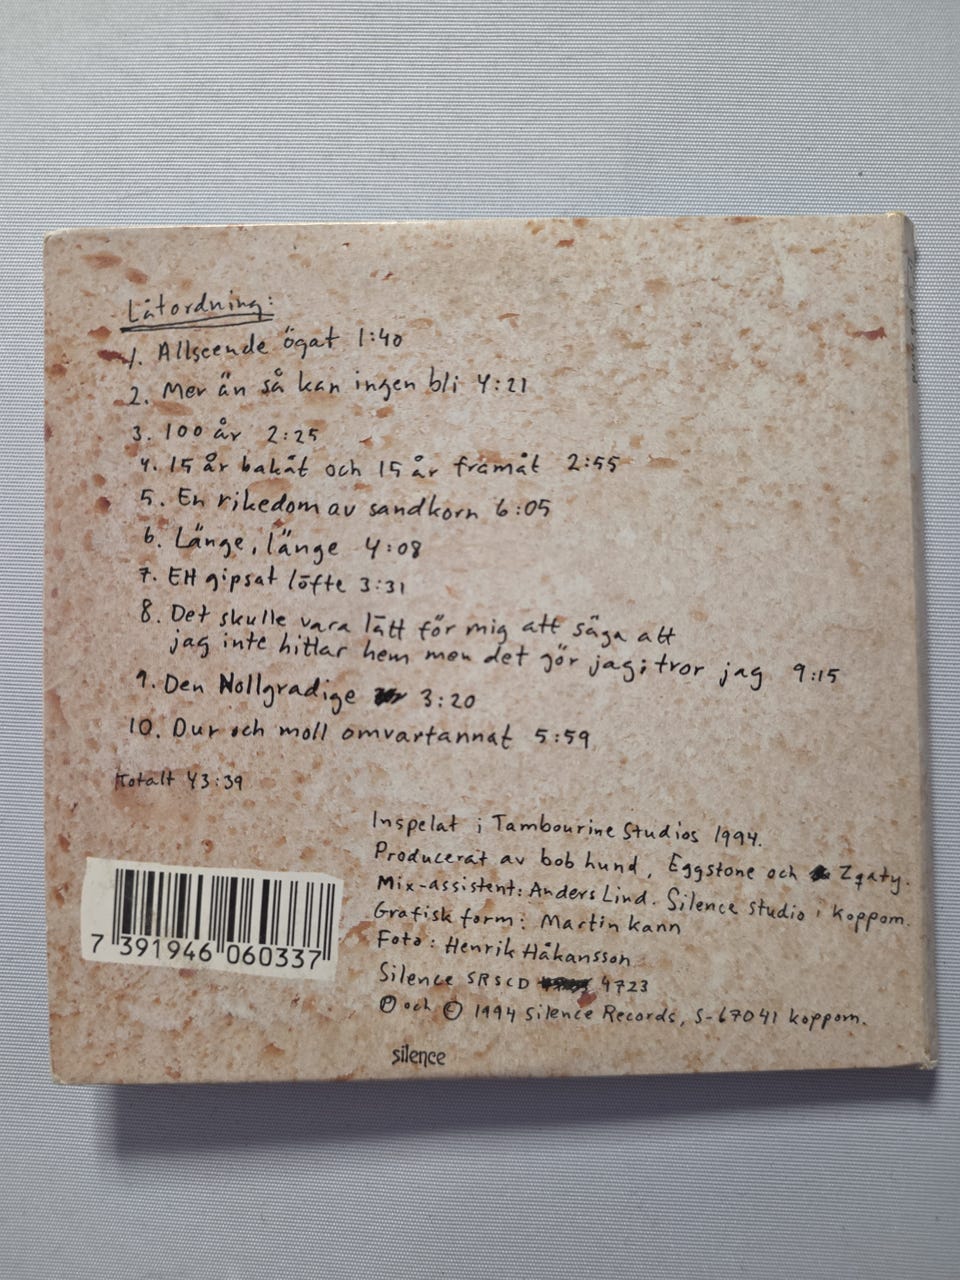 Låtordning:
1. Allseende ögat 1:40
2. Mer än så kan ingen bli 4:21
3. 100 år 2:25
4. 15 år bakåt och 15 år framåt 2:55
5. En rikedom av sandkorn 6:05
6. Länge, länge 4:08
7. Ett gipsat löfte 3:31
8. Det skulle vara lätt för mig att säga att
jag inte hittar hem men det gör jag; tror jag 9:15
9. Den Nollgradige 3:20
10. Dur och moll omvartannat 5:59
totalt 43:39
Inspelat i Tambourine Studios 1994.
Producerat av bob hund, Eggstone och Zqaty.
Mix-assistent: Anders Lind. Silence studio i koppom.
Grafisk form: Martin kann
Foto: Henrik Håkansson
Silence SRSCD 4723
℗ och © 1994 Silence Records, S-67041 koppom.
7 391946 060337
silence